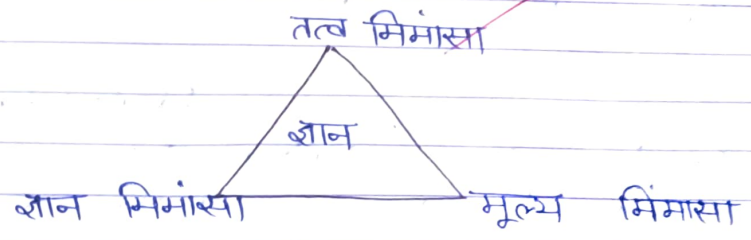 तत्व मिमांसा
ज्ञान
ज्ञान मिमांसा मूल्य मिंमासा